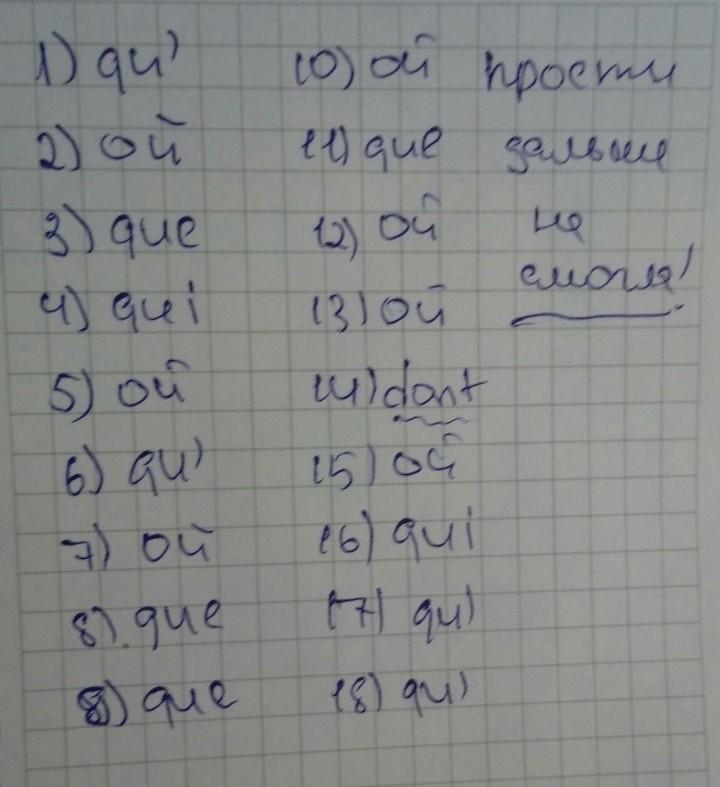 1) qu'
2) où
3) que
4) qui
5) où
6) qu'
7) où
8) que
9) que
10) où
11) que
12) où
13) où
14) dont
15) où
16) qui
17) qu'
18) qu'
прости
дальше
не
смогла!